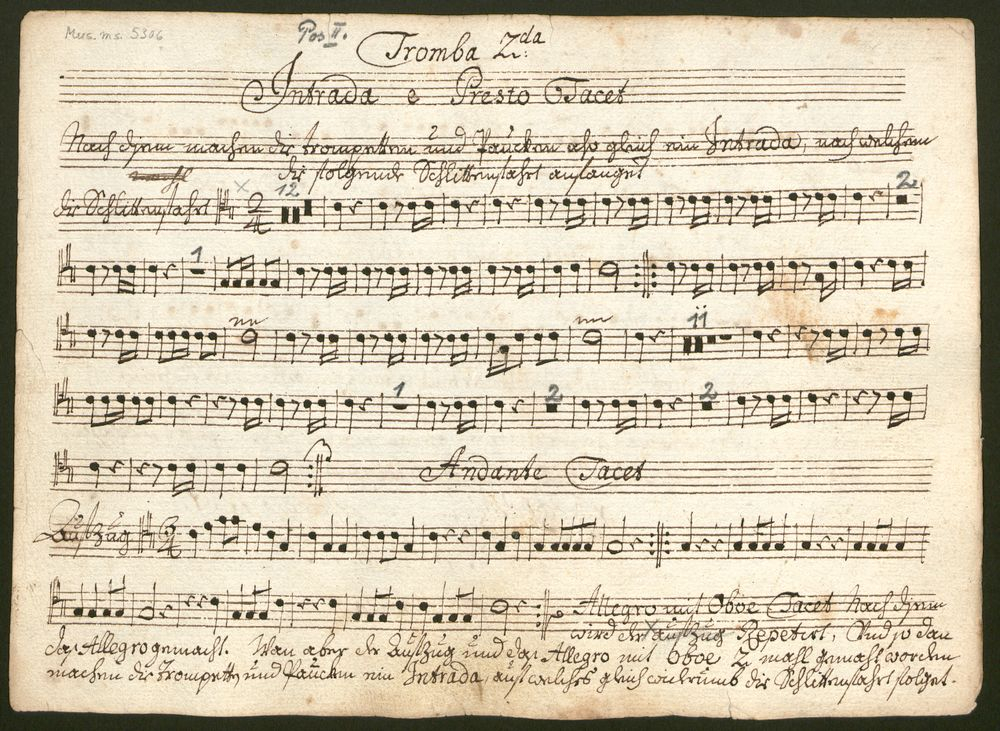 Mus. ms. 5306
Pos II.
Tromba 2da
Intrada e Presto Tacet
Nach disem machen die Trompetten und Paucken also gleich ein Intrada, nach welchem
die folgende Schlittenfahrt anfanget
die Schlittenfahrt 2/4 12 2
1
11
1 2 2
Andante Tacet
Aufzug 3/4
Allegro mit Oboe Tacet Nach disem
wird der aufzug Repetirt, Und so dan
das Allegro gemacht. Wan aber der Aufzug und das Allegro mit Oboe 2 mahl gemacht worden
machen die Trompetten und Paucken ein Intrada, auf welches gleich widerumb die Schlittenfahrt folget.